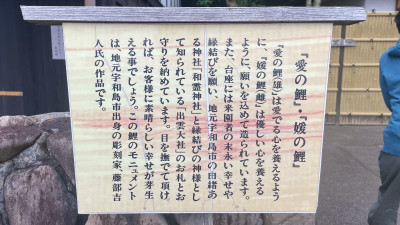 『愛の鯉』・『媛の鯉』
『愛の鯉雄』は愛でる心を養えるよう
に、『媛の鯉雌』は優しい心を養える
ように、願いを込めて造られています。
また、台座には来園者の末永い幸せや
縁結びを願い、地元宇和島市の由緒あ
る神社「和霊神社」と縁結びの神様とし
て知られている「出雲大社」のお札とお
守りを納めています。目を撫でて頂け
れば、お客様に素晴らしい幸せが芽生
える事でしょう。この鯉のモニュメント
は、地元宇和島市出身の彫刻家、藤部吉
人氏の作品です。